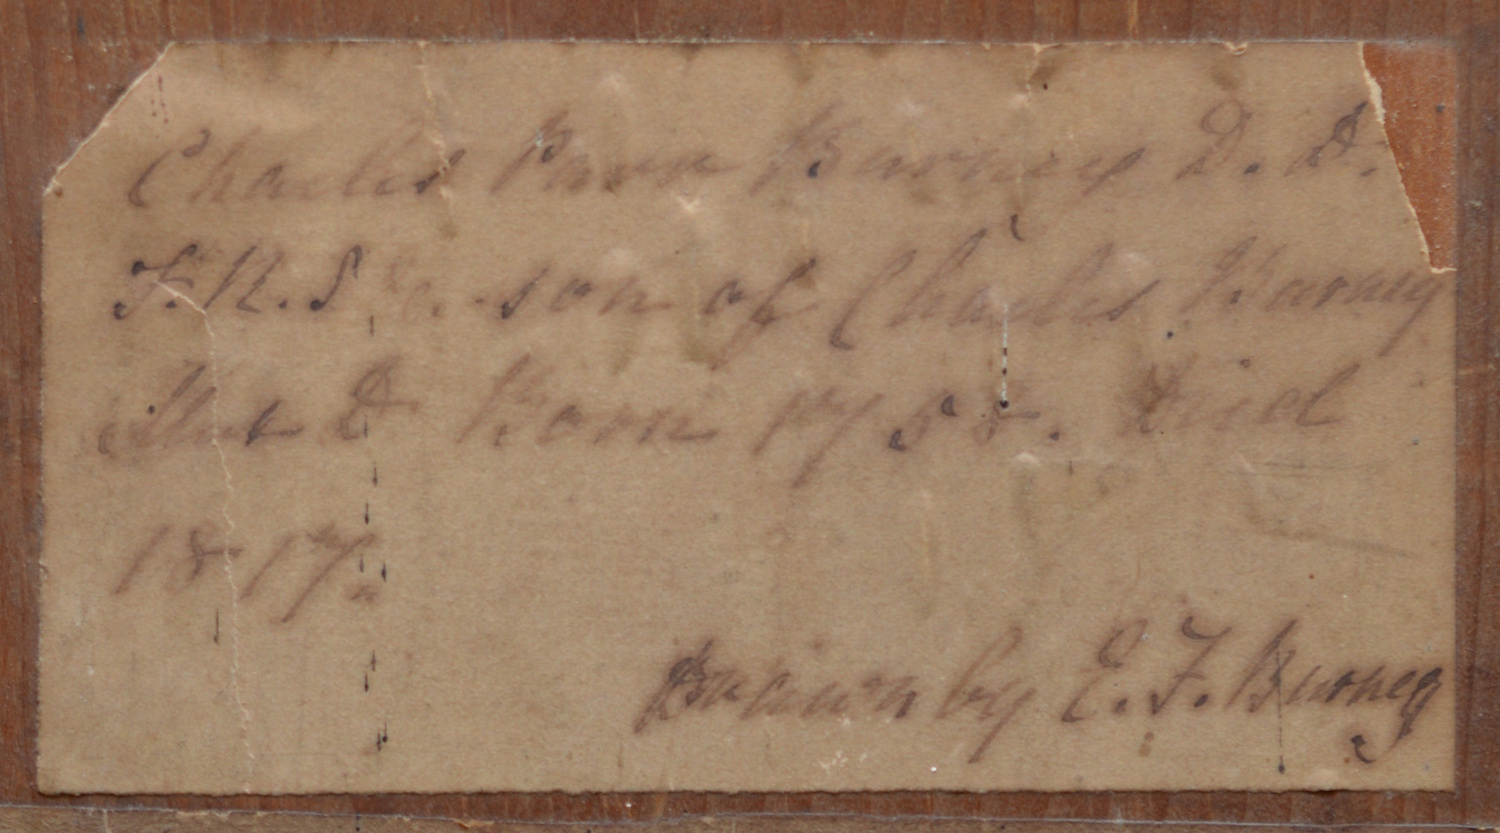 Charles Parr Burney D. D.
F. R. S &c. son of Charles Burney
Mus D Born 1758. Died
1817.
Drawn by E. F. Burney